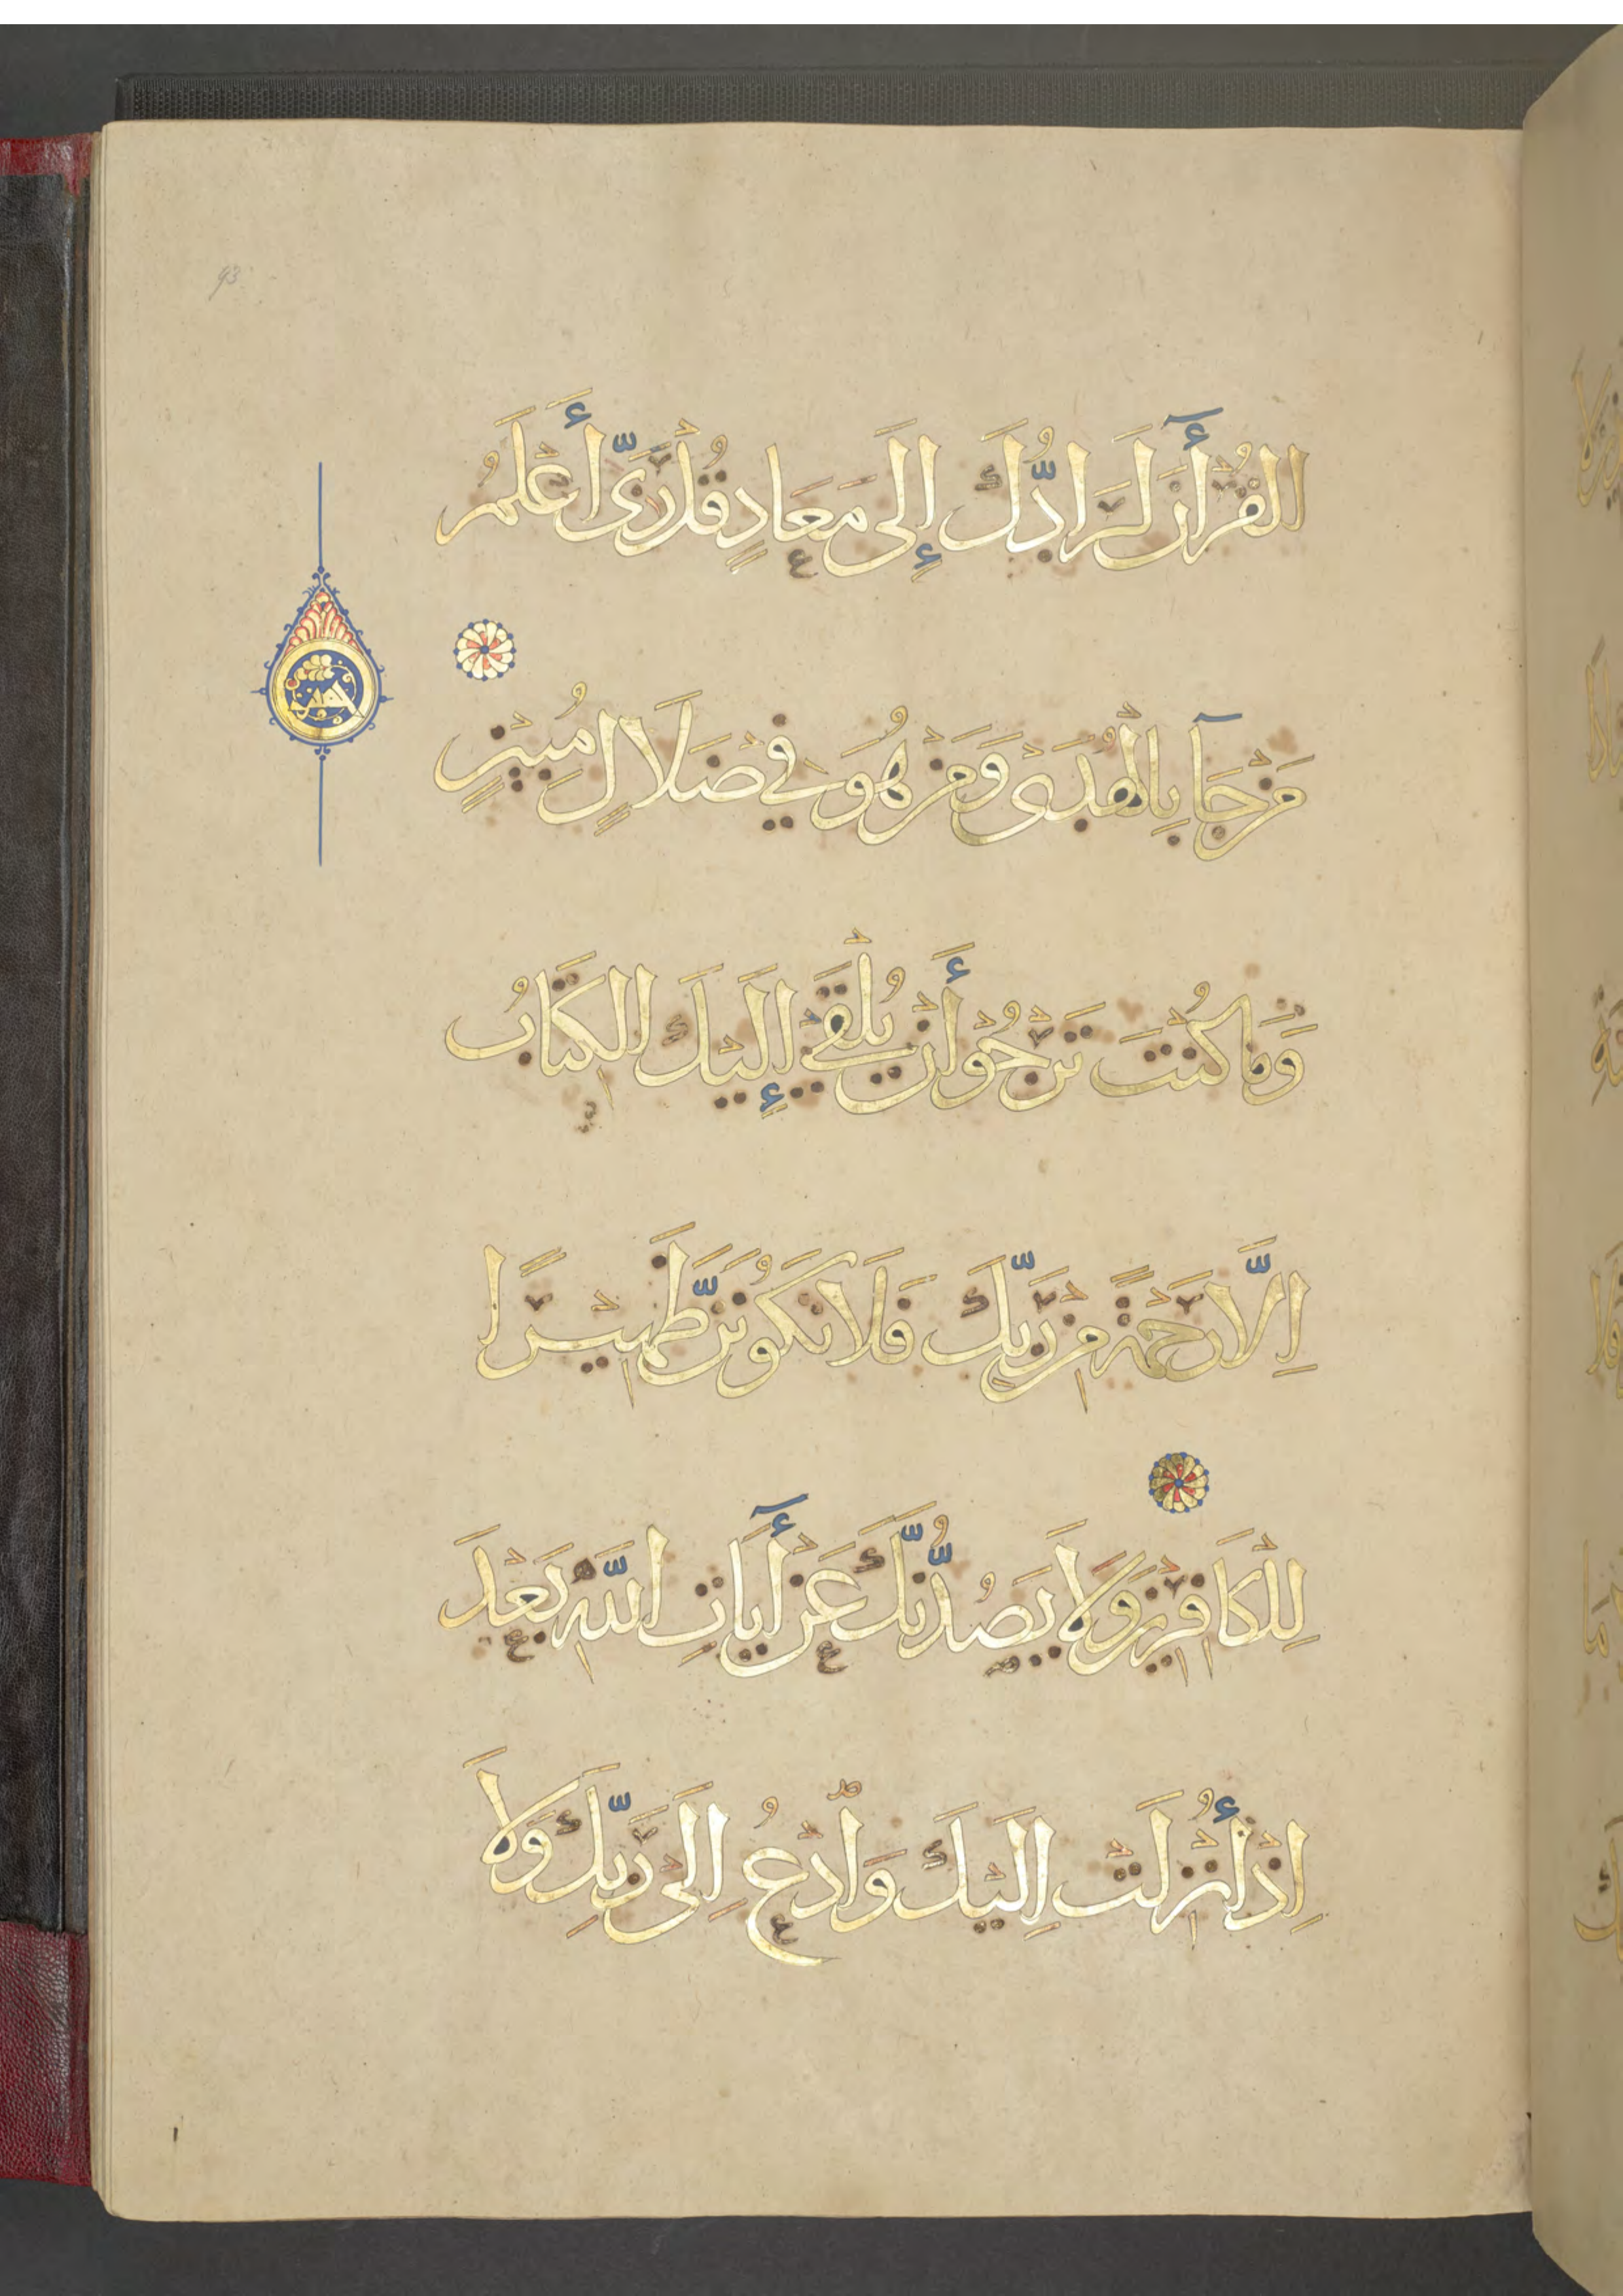 93
الْقُرْأٓنَ لَرَادُّكَ إِلَى مَعَادٍ قُلْ رَبِّىٓ أَعْلَمُ
مَنْ جَآءَ بِالْهُدَى وَمَنْ هُوَ فِي ضَلَالٍ مُبِينٍ
وَمَا كُنْتَ تَرْجُوْ أَنْ يُلْقَىٓ إِلَيْكَ الْكِتَابُ
اِلَّا رَحْمَةً مِنْ رَبِّكَ فَلَا تَكُوْنَنَّ ظَهِيْرًا
لِلْكَافِرِيْنَ وَلَا يَصُدُّنَّكَ عَنْ أٓيَاتِ اللَّهِ بَعْدَ
اِذْ أُنْزِلَتْ اِلَيْكَ وَادْعُ اِلَى رَبِّكَ وَلَا